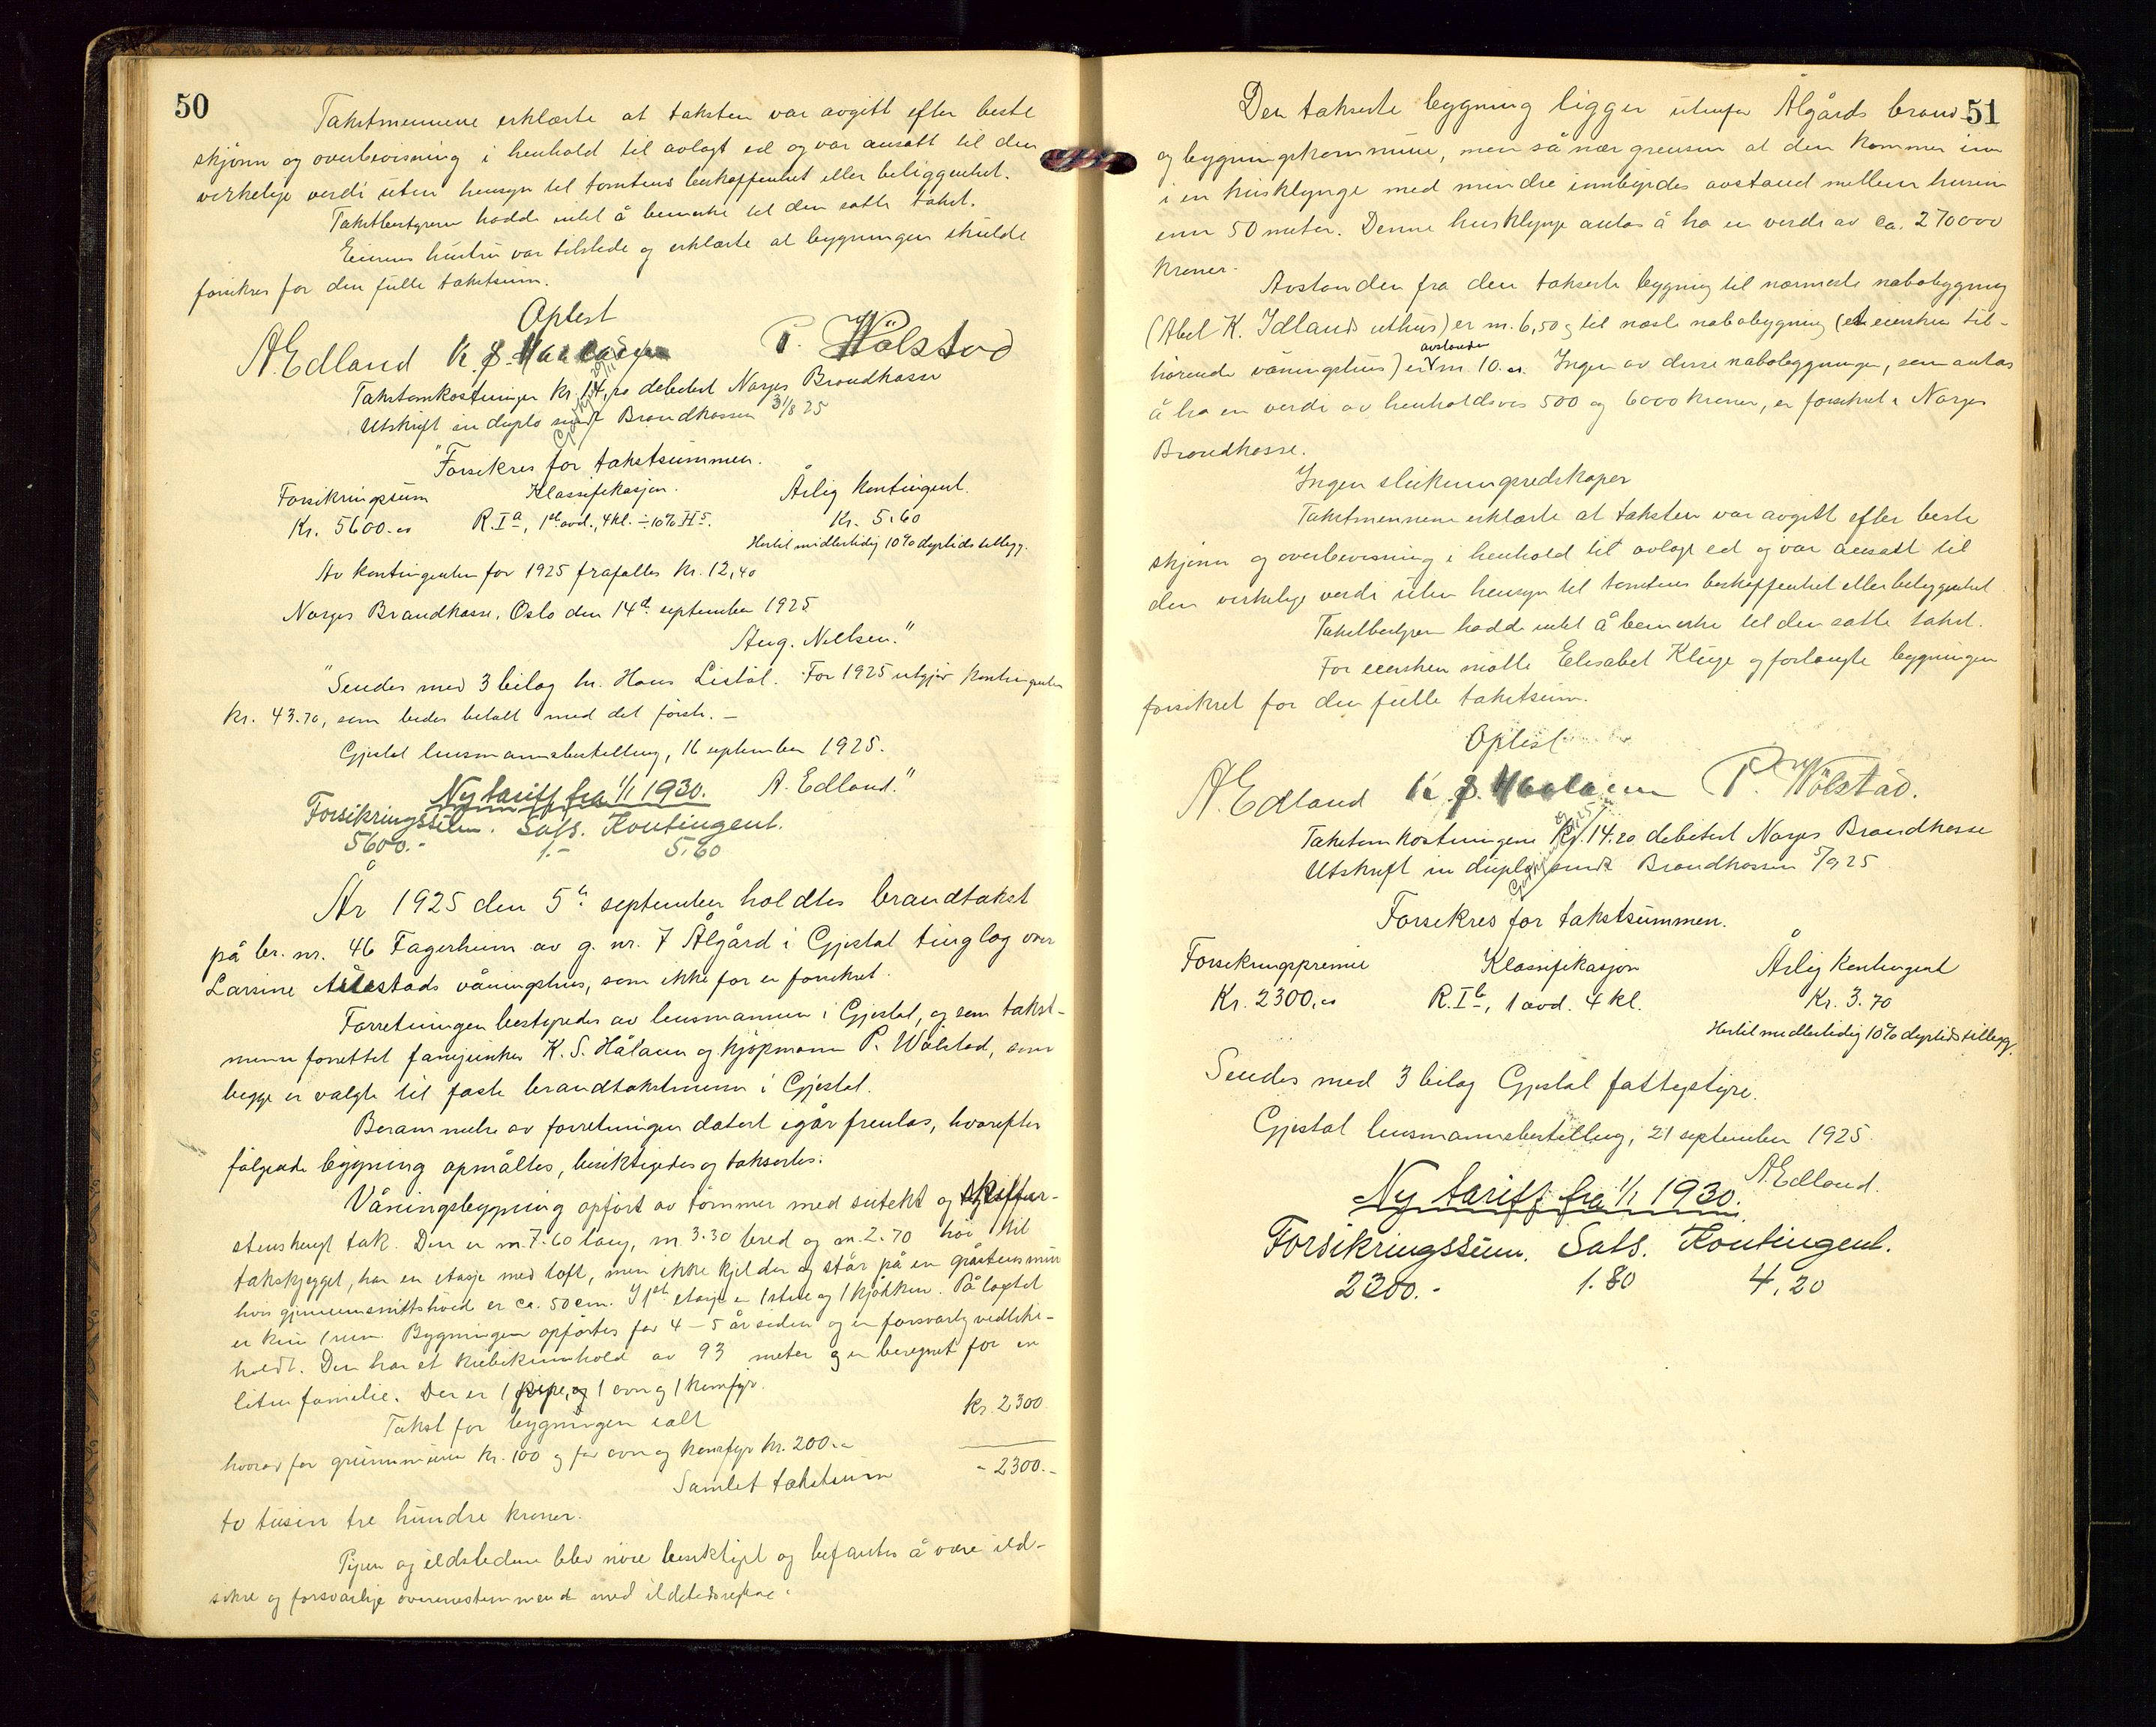 50
Takstmennene erklærte at taksten var avgitt efter beste
skjönn og overbevisning i henhold til avlagt ed og var ansatt til den
virkelige verdi uten hensyn til tomtens beskaffenhet eller beliggenhet.
Takstbestyreren hadde intet å bemerke til den satte takst.
Eierens hustru var tilstede og erklærte at bygningen skulde
forsikres for den fulle takstsum.
Oplest
A. Edland K. S. Haaland P. Wölstad
Takstomkostninger kr. 14,20 debetert Norges Brandkasse
Utskrift in duplo sendt Brandkassen 31/8 25
"Forsikres for takstsummen.
Forsikringssum Klassifikasjon. Årlig kontingent.
Kr. 5600.00 R.Iª, 1st avd., 4 kl. ÷ 10% Hs. Kr. 5.60
Hertil midlertidig 10% dyrtidstillegg.
Av kontingenten for 1925 frafalles kr. 12,40
Norges Brandkasse, Oslo den 14de september 1925
Aug. Nilsen."
"Sendes med 3 bilag hr. Hans Listöl. For 1925 utgjør kontingenten
kr. 43.70, som bedes betalt med det første. –
Gjestal lensmannsbestilling, 16 september 1925.
A. Edland."
Ny tariff fra 1/1 1930.
Forsikringssum. Sats. Kontingent.
5600.- 1.- 5.60
År 1925 den 5te september holdtes brandtakst
på br. nr. 46 Fagerheim av g. nr. 7 Ålgård i Gjestal tinglag over
Larsine Ålestads våningshus, som ikke før er forsikret.
Forretningen bestyredes av lensmannen i Gjestal, og som takst-
menn forrettet fanejunker K. S. Håland og kjöpmann P. Wölstad, som
begge er valgte til faste brandtakstmenn i Gjestal.
Berammelse av forretningen datert igår fremlas, hvorefter
følgende bygning opmåltes, besiktigedes og taksertes:
Våningsbygning opført av tömmer med sutekt og skiffer-
stenshengt tak. Den er m. 7.60 lang, m. 3.30 bred og m. 2.70 höi til
takskjegget, har en etasje med loft, men ikke kjelder og står på en gråstensmur
hvis gjennemsnittshöide er ca. 50 cm. I 1ste etasje er 1 stue og 1 kjökken. På loftet
er kun 1 rum. Bygningen opførtes for 4 – 5 år siden og er forsvarlig vedlike-
holdt. Den har et kubikkinnhold av 93 meter og er beregnet for en
liten familie. Der er 1 pipe, og 1 ovn og 1 komfyr.
Takst for bygningen ialt kr. 2300
hvorav for grunnmuren kr. 100 og for ovn og komfyr kr. 200.00
Samlet takstsum - 2300.-
to tusin tre hundre kroner.
Pipen og ildstedene blev nöie besiktiget og befantes å være ild-
sikre og forsvarlige overensstemmende med ildstedsreglene.
51
Den takserte bygning ligger utenfor Ålgårds brand-
og bygningskommune, men så nær grensen at den kommer inn
i en husklynge med mindre innbyrdes avstand mellem husene
enn 50 meter. Denne husklynge antas å ha en verdi av ca. 270000
kroner.
Avstanden fra den takserte bygning til nærmeste nabobygning
(Abel K. Idlands uthus) er m. 6,50 og til næste nabobygning (et eiersken til-
hørende våningshus) er avstanden m. 10.00 Ingen av disse nabobygninger, som antas
å ha en verdi av henholdsvis 500 og 6000 kroner, er forsikret i Norges
Brandkasse.
Ingen slukningsredskaper
Takstmennene erklærte at taksten var avgitt efter beste
skjønn og overbevisning i henhold til avlagt ed og var ansatt til
den virkelige verdi uten hensyn til tomtens beskaffenhet eller beliggenhet
Takstbestyreren hadde intet å bemerke til den satte takst.
For eiersken møtte Elisabet Kluge og forlangte bygningen
forsikret for den fulle takstsum.
Oplest
A. Edland K. S. Haaland P. Wölstad.
Takstomkostningene kr. 14.20 debitert Norges Brandkasse
Utskrift in duplo sendt Brandkassen 5/9 25
Forsikres for takstsummen.
Forsikringspremie Klassifikasjon Årlig kontingent
Kr. 2300.00 R.Ib, 1 avd. 4 kl. Kr. 3.70
Hertil midlertidig 10% dyrtidstillegg.
Sendes med 3 bilag Gjestal fattigstyre.
Gjestal lensmannsbestilling, 21 september 1925.
A. Edland.
Ny tariff fra 1/1 1930.
Forsikringssum. Sats. Kontingent.
2300.- 1.80 4,20